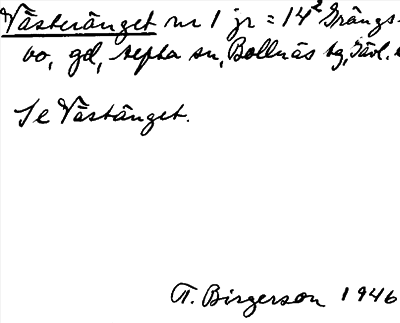 Västeränget nr 1 jr = 14² Grängs-
bo, gd, Alfta sn, Bollnäs tg, Gävl. l
Se Västänget.
T. Birgerson 1946